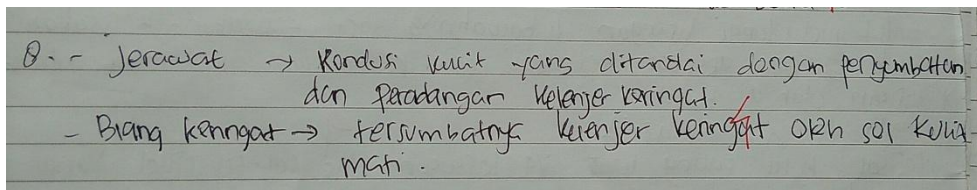 8. - Jerawat → Kondusi kulit yang ditandai dengan penyumbatan
dan peradangan kelenjer keringat.
- Biang keringat → tersumbatnya kelenjer keringat oleh sel kulit
mati.